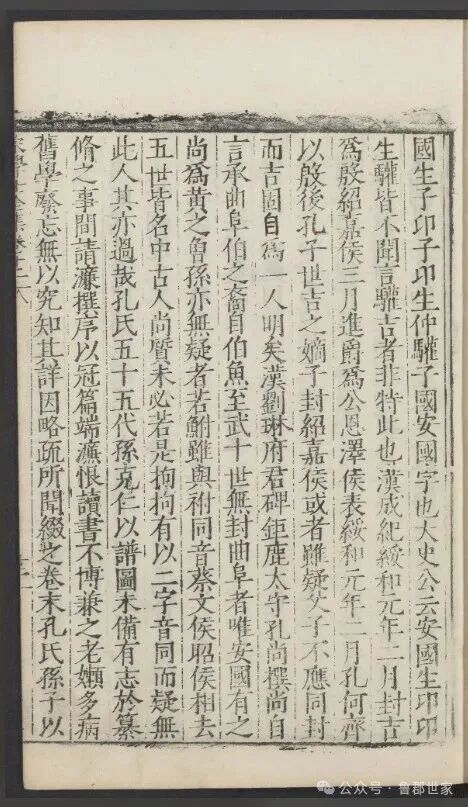 國生子卬子卬生仲驩子國安國字也大史公云安國生卬卬
生驩皆不聞言驩吉者非特此也漢成紀綏和元年二月封吉
爲殷紹嘉侯三月進爵爲公恩澤侯表綏和元年二月孔何齊
以殷後孔子世吉之嫡子封紹嘉侯或者雖疑父子不應同封
而吉固自爲一人明矣漢劉琳府君碑鉅鹿太守孔尚撰尚自
言承曲阜伯之裔自伯魚至武十世無封曲阜者唯安國有之
尚爲黃之魯孫亦無疑者若鮒雖與祔同音蔡文侯昭侯相去
五世皆名中古人尚質未必若是拘拘有以二字音同而疑無
此人其亦過哉孔氏五十五代孫克仁以譜圖未備有志於纂
脩之事間請濂撰序以冠篇端濂恨讀書不博兼之老嬾多病
舊學廢忘無以究知其詳因略疏所聞綴之卷末孔氏孫子以
公众号·鲁郡世家